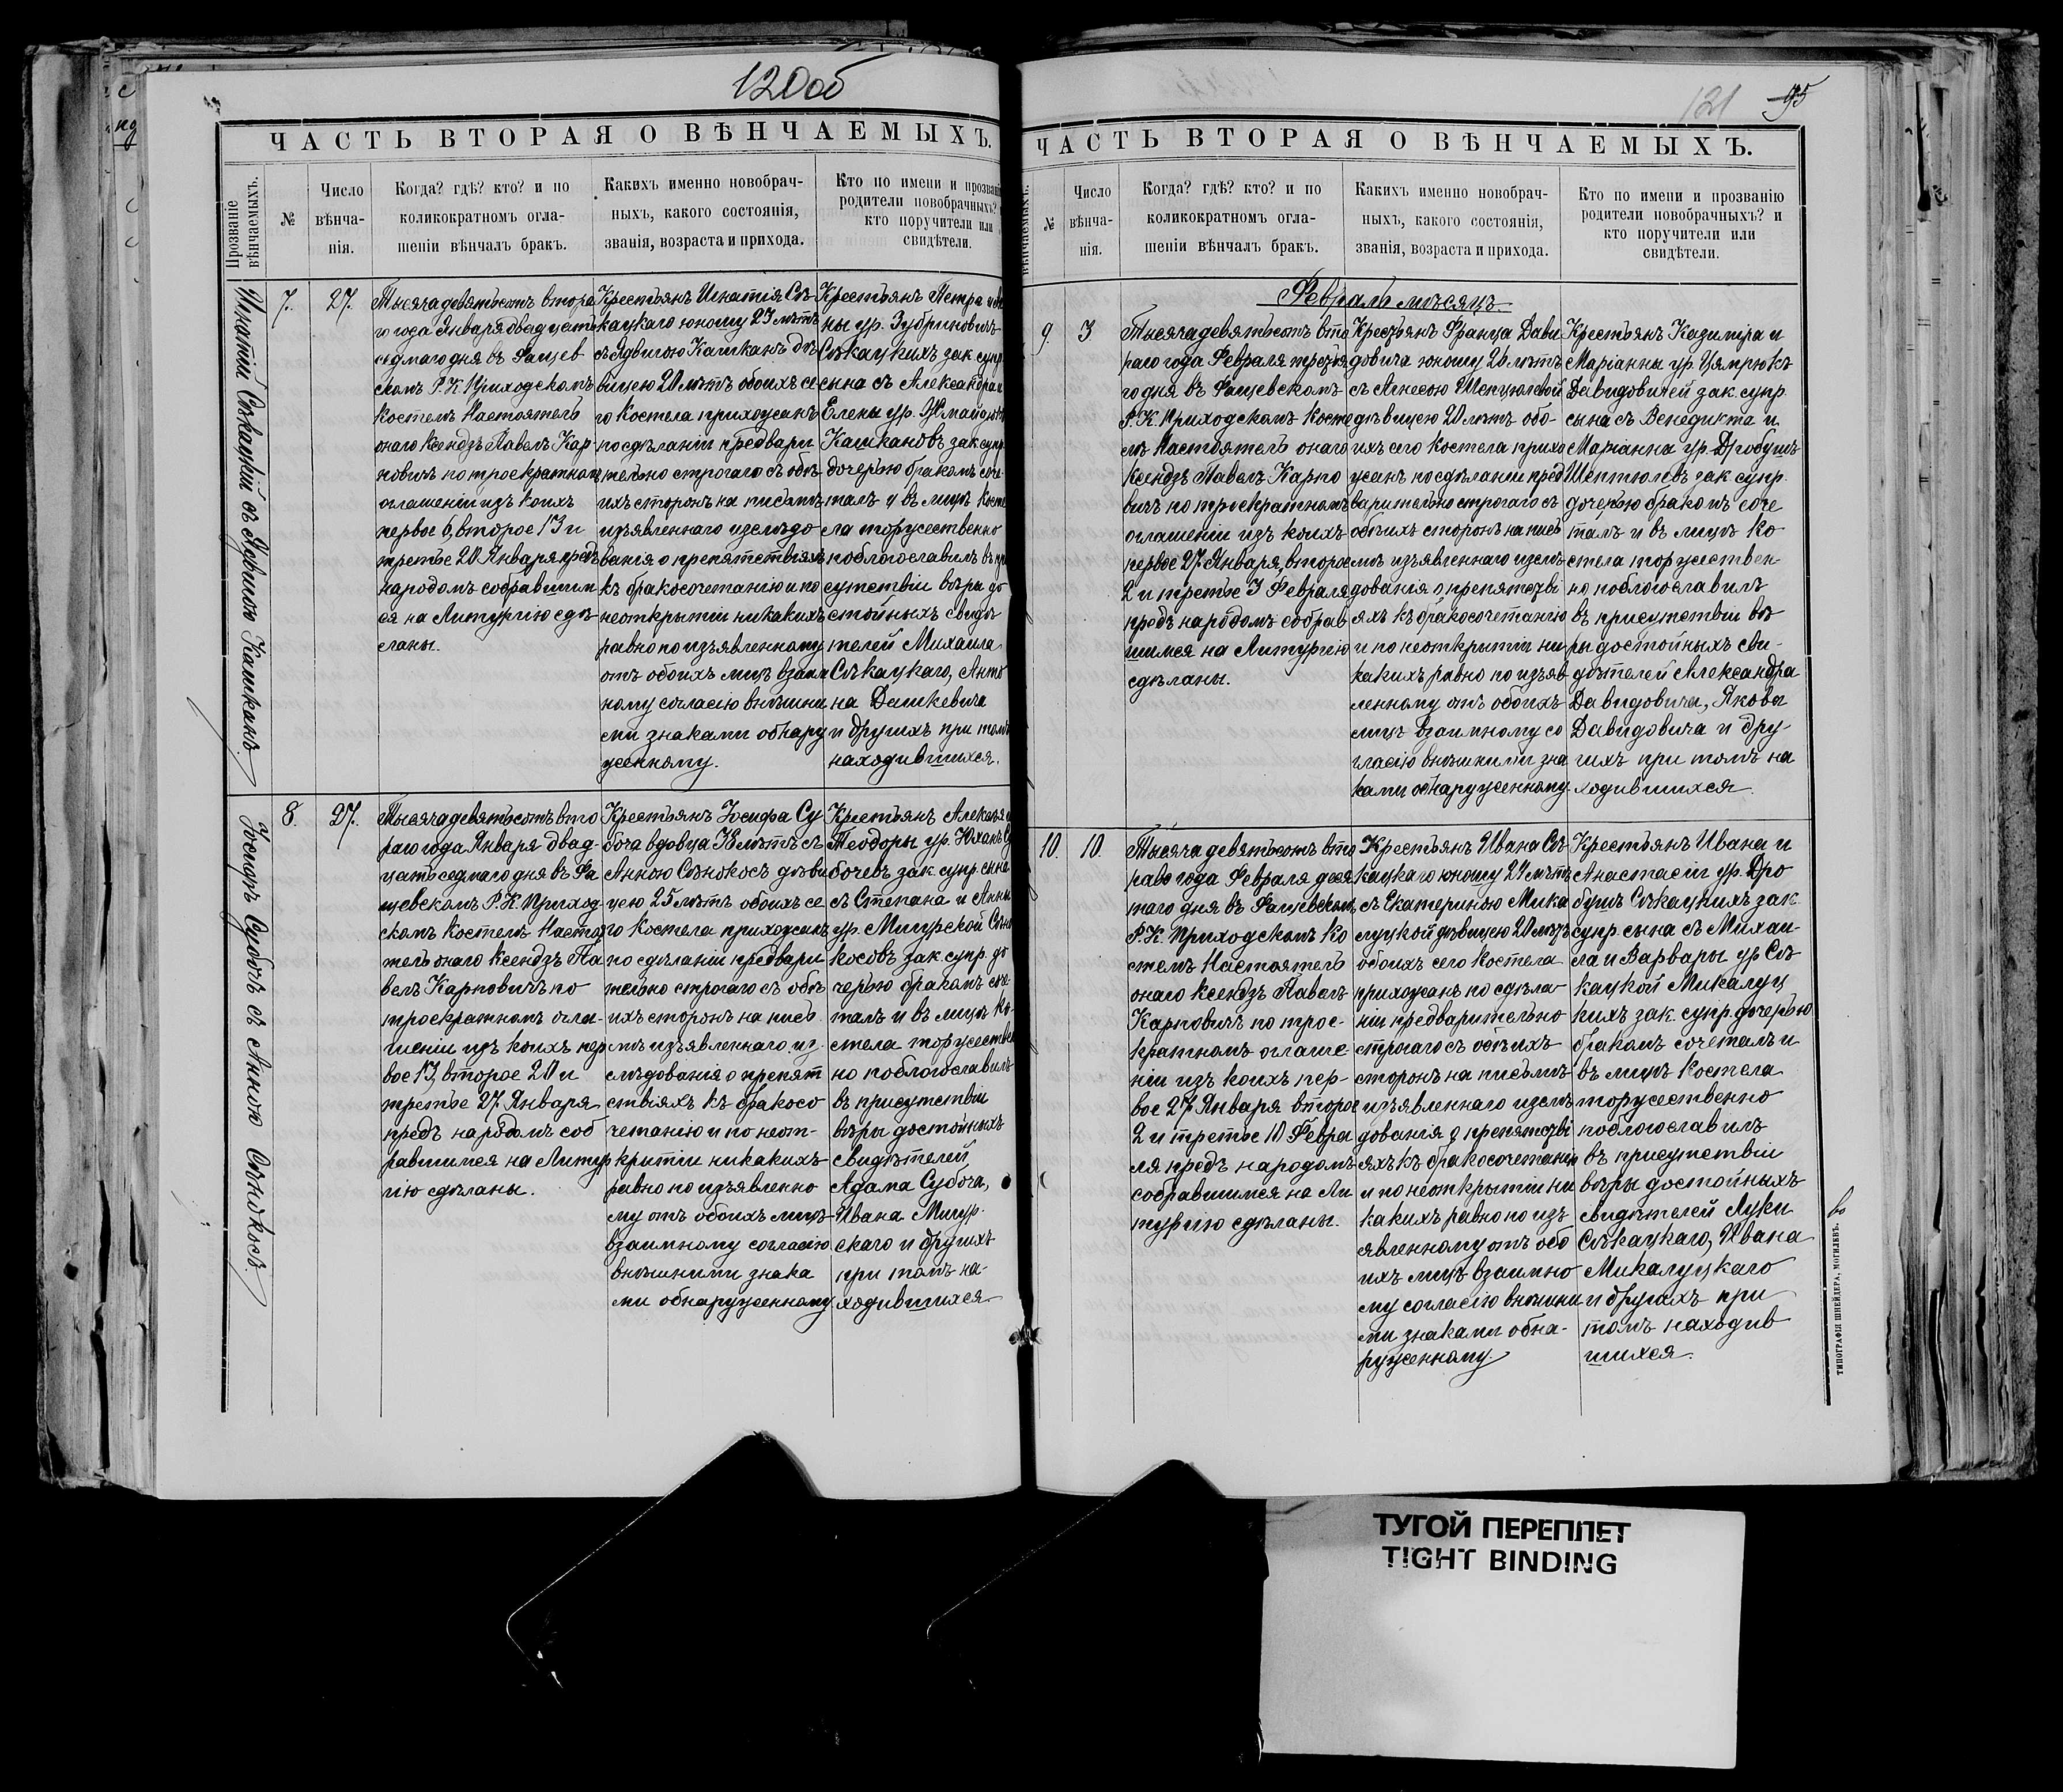 120об
ЧАСТЬ ВТОРАЯ О ВѢНЧАЕМЫХЪ.
Прозваніе
вѣнчаемыхъ.
№
Число
вѣнча-
нія.
Когда? гдѣ? кто? и по
коликократномъ огла-
шеніи вѣнчалъ бракъ.
Какихъ именно новобрач-
ныхъ, какого состоянія,
званія, возраста и прихода.
Кто по имени и прозванію
родители новобрачныхъ?
кто поручители или
свидѣтели.
Игнатій Сѣкацкій съ Ядвигою Кашканъ
7.
27.
Тысяча девятьсотъ второ
го года Января двадцать
седмаго дня въ Фащев
скомъ Р. К. Приходскомъ
костелѣ Настоятель
онаго Ксендзъ Павелъ Кар
повичъ по троекратномъ
оглашеніи изъ коихъ
первое 6, второе 13 и
третье 20 Января предъ
народомъ собравшим
ся на Литургію сдѣ
ланы.
Крестьянъ Игнатія Сѣ
кацкаго юношу 23 лѣтъ
съ Ядвигою Кашканъ дѣ
вицею 20 лѣтъ обоихъ се
го костела прихожанъ
по сдѣланіи предвари
тельно строгаго съ обѣ
ихъ сторонъ на письмѣ
изъявленнаго изслѣдо
ванія о препятствіяхъ
къ бракосочетанію и по
неоткрытіи никакихъ
равно по изъявленному
отъ обоихъ лицъ взаим
ному согласію внѣшни
ми знаками обнару
женному.
Крестьянъ Петра и Ан
ны ур. Зубриновичъ
Сѣкацкихъ зак. супр.
сына съ Александра и
Елены ур. Жмайдюкъ
Кашкановъ зак. супр.
дочерью бракомъ соче-
талъ и въ лицѣ Косте
ла торжественно
поблагословилъ въ при
сутствіи вѣры до
стойныхъ свидѣ
телей Михаила
Сѣкацкаго, Анто
на Дашкевича
и другихъ при томъ
находившихся.
Іосифъ Субочъ съ Анною Сѣнокосъ
8.
27.
Тысяча девятьсотъ вто
раго года Января двад-
цать седмаго дня въ Фа
щевскомъ Р. К. Приход
скомъ костелѣ Настоя
тель онаго Ксендзъ Па
велъ Карповичъ по
троекратномъ огла-
шеніи изъ коихъ пер
вое 13, второе 20 и
третье 27 Января
предъ народомъ соб
равшимся на Литур
гію сдѣланы.
Крестьянъ Іосифа Су
боча вдовца 38 лѣтъ съ
Анною Сѣнокосъ дѣви
цею 25 лѣтъ обоихъ се
го костела прихожанъ
по сдѣланіи предвари
тельно строгаго съ обѣ
ихъ сторонъ на пись
мѣ изъявленнаго из-
слѣдованія о препят
ствіяхъ къ бракосо
четанію и по неот-
крытіи никакихъ
равно по изъявленно
му отъ обоихъ лицъ
взаимному согласію
внѣшними знака
ми обнаруженному.
Крестьянъ Алексѣя и
Теодоры ур. Юханъ Су
бочевъ зак. супр. сына
съ Степана и Анны
ур. Мигурской Сѣно
косовъ зак. супр. до
черью бракомъ соче-
талъ и въ лицѣ ко-
стела торжествен
но поблагословилъ
въ присутствіи
вѣры достойныхъ
свидѣтелей
Адама Субоча,
Ивана Мигур-
скаго и другихъ
при томъ на-
ходившихся
121
95
ЧАСТЬ ВТОРАЯ О ВѢНЧАЕМЫХЪ.
вѣнчаемыхъ.
№
Число
вѣнча-
нія.
Когда? гдѣ? кто? и по
коликократномъ огла-
шеніи вѣнчалъ бракъ.
Какихъ именно новобрач-
ныхъ, какого состоянія,
званія, возраста и прихода.
Кто по имени и прозванію
родители новобрачныхъ? и
кто поручители или
свидѣтели.
Февраль мѣсяцъ.
9.
3
Тысяча девятьсотъ вто
раго года Февраля третья
го дня въ Фащевскомъ
Р. К. Приходскомъ косте
лѣ Настоятель онаго
Ксендзъ Павелъ Карпо
вичъ по троекратномъ
оглашеніи изъ коихъ
первое 27 Января, второе
2 и третье 3 Февраля
предъ народомъ собрав
шимся на Литургію
сдѣланы.
Крестьянъ Франца Дави
довича юношу 26 лѣтъ
съ Агнесою Шептюлевой
дѣвицею 20 лѣтъ обо-
ихъ сего костела прихо
жанъ по сдѣланіи пред
варительно строгаго съ
обѣихъ сторонъ на пись
мѣ изъявленнаго изслѣ
дованія о препятстві
яхъ къ бракосочетанію
и по неоткрытіи ни
какихъ равно по изъяв
ленному отъ обоихъ
лицъ взаимному со
гласію внѣшними зна
ками обнаруженному.
Крестьянъ Казиміра и
Маріанны ур. Цямрюкъ
Давидовичей зак. супр.
сына съ Венедикта и
Маріанны ур. Дробушъ
Шептюлевъ зак. супр.
дочерью бракомъ соче
талъ и въ лицѣ ко
стела торжествен-
но поблагословилъ
въ присутствіи вѣ
ры достойныхъ сви-
дѣтелей Александра
Давидовича, Якова
Давидовича и дру-
гихъ при томъ на
ходившихся.
10.
10.
Тысяча девятьсотъ вто
раго года Февраля деся
таго дня въ Фащевскомъ
Р. К. Приходскомъ ко
стелѣ Настоятель
онаго Ксендзъ Павелъ
Карповичъ по трое-
кратномъ оглаше
ніи изъ коихъ пер-
вое 27 Января второе
2 и третье 10 Февра
ля предъ народомъ
собравшимся на Ли
тургію сдѣланы.
Крестьянъ Ивана Сѣ
кацкаго юношу 21 лѣтъ
съ Екатериною Мика
луцкой дѣвицею 20 лѣтъ
обоихъ сего костела
прихожанъ по сдѣла-
ніи предварительно
строгаго съ обѣихъ
сторонъ на письмѣ
изъявленнаго изслѣ
дованія о препятстві
яхъ къ бракосочетанію
и по неоткрытіи ни
какихъ равно по изъ
явленному отъ обо
ихъ лицъ взаимно
му согласію внѣшни
ми знаками обна-
руженному.
Крестьянъ Ивана и
Анастасіи ур. Дро
бушъ Сѣкацкихъ зак.
супр. сына съ Михаи-
ла и Варвары ур Сѣ
кацкой Микалуц
кихъ зак. супр. дочерью
бракомъ сочеталъ и
въ лицѣ костела
торжественно
поблагославилъ
въ присутствіи
вѣры достойныхъ
свидѣтелей Луки
Сѣкацкаго, Ивана
Микалуцкаго
и другихъ при
томъ находив
шихся.
ТИПОГРАФІЯ ШНЕЙДЕРА, МОГИЛЕВЪ.
ТУГОЙ ПЕРЕПЛЕТ
TIGHT BINDING